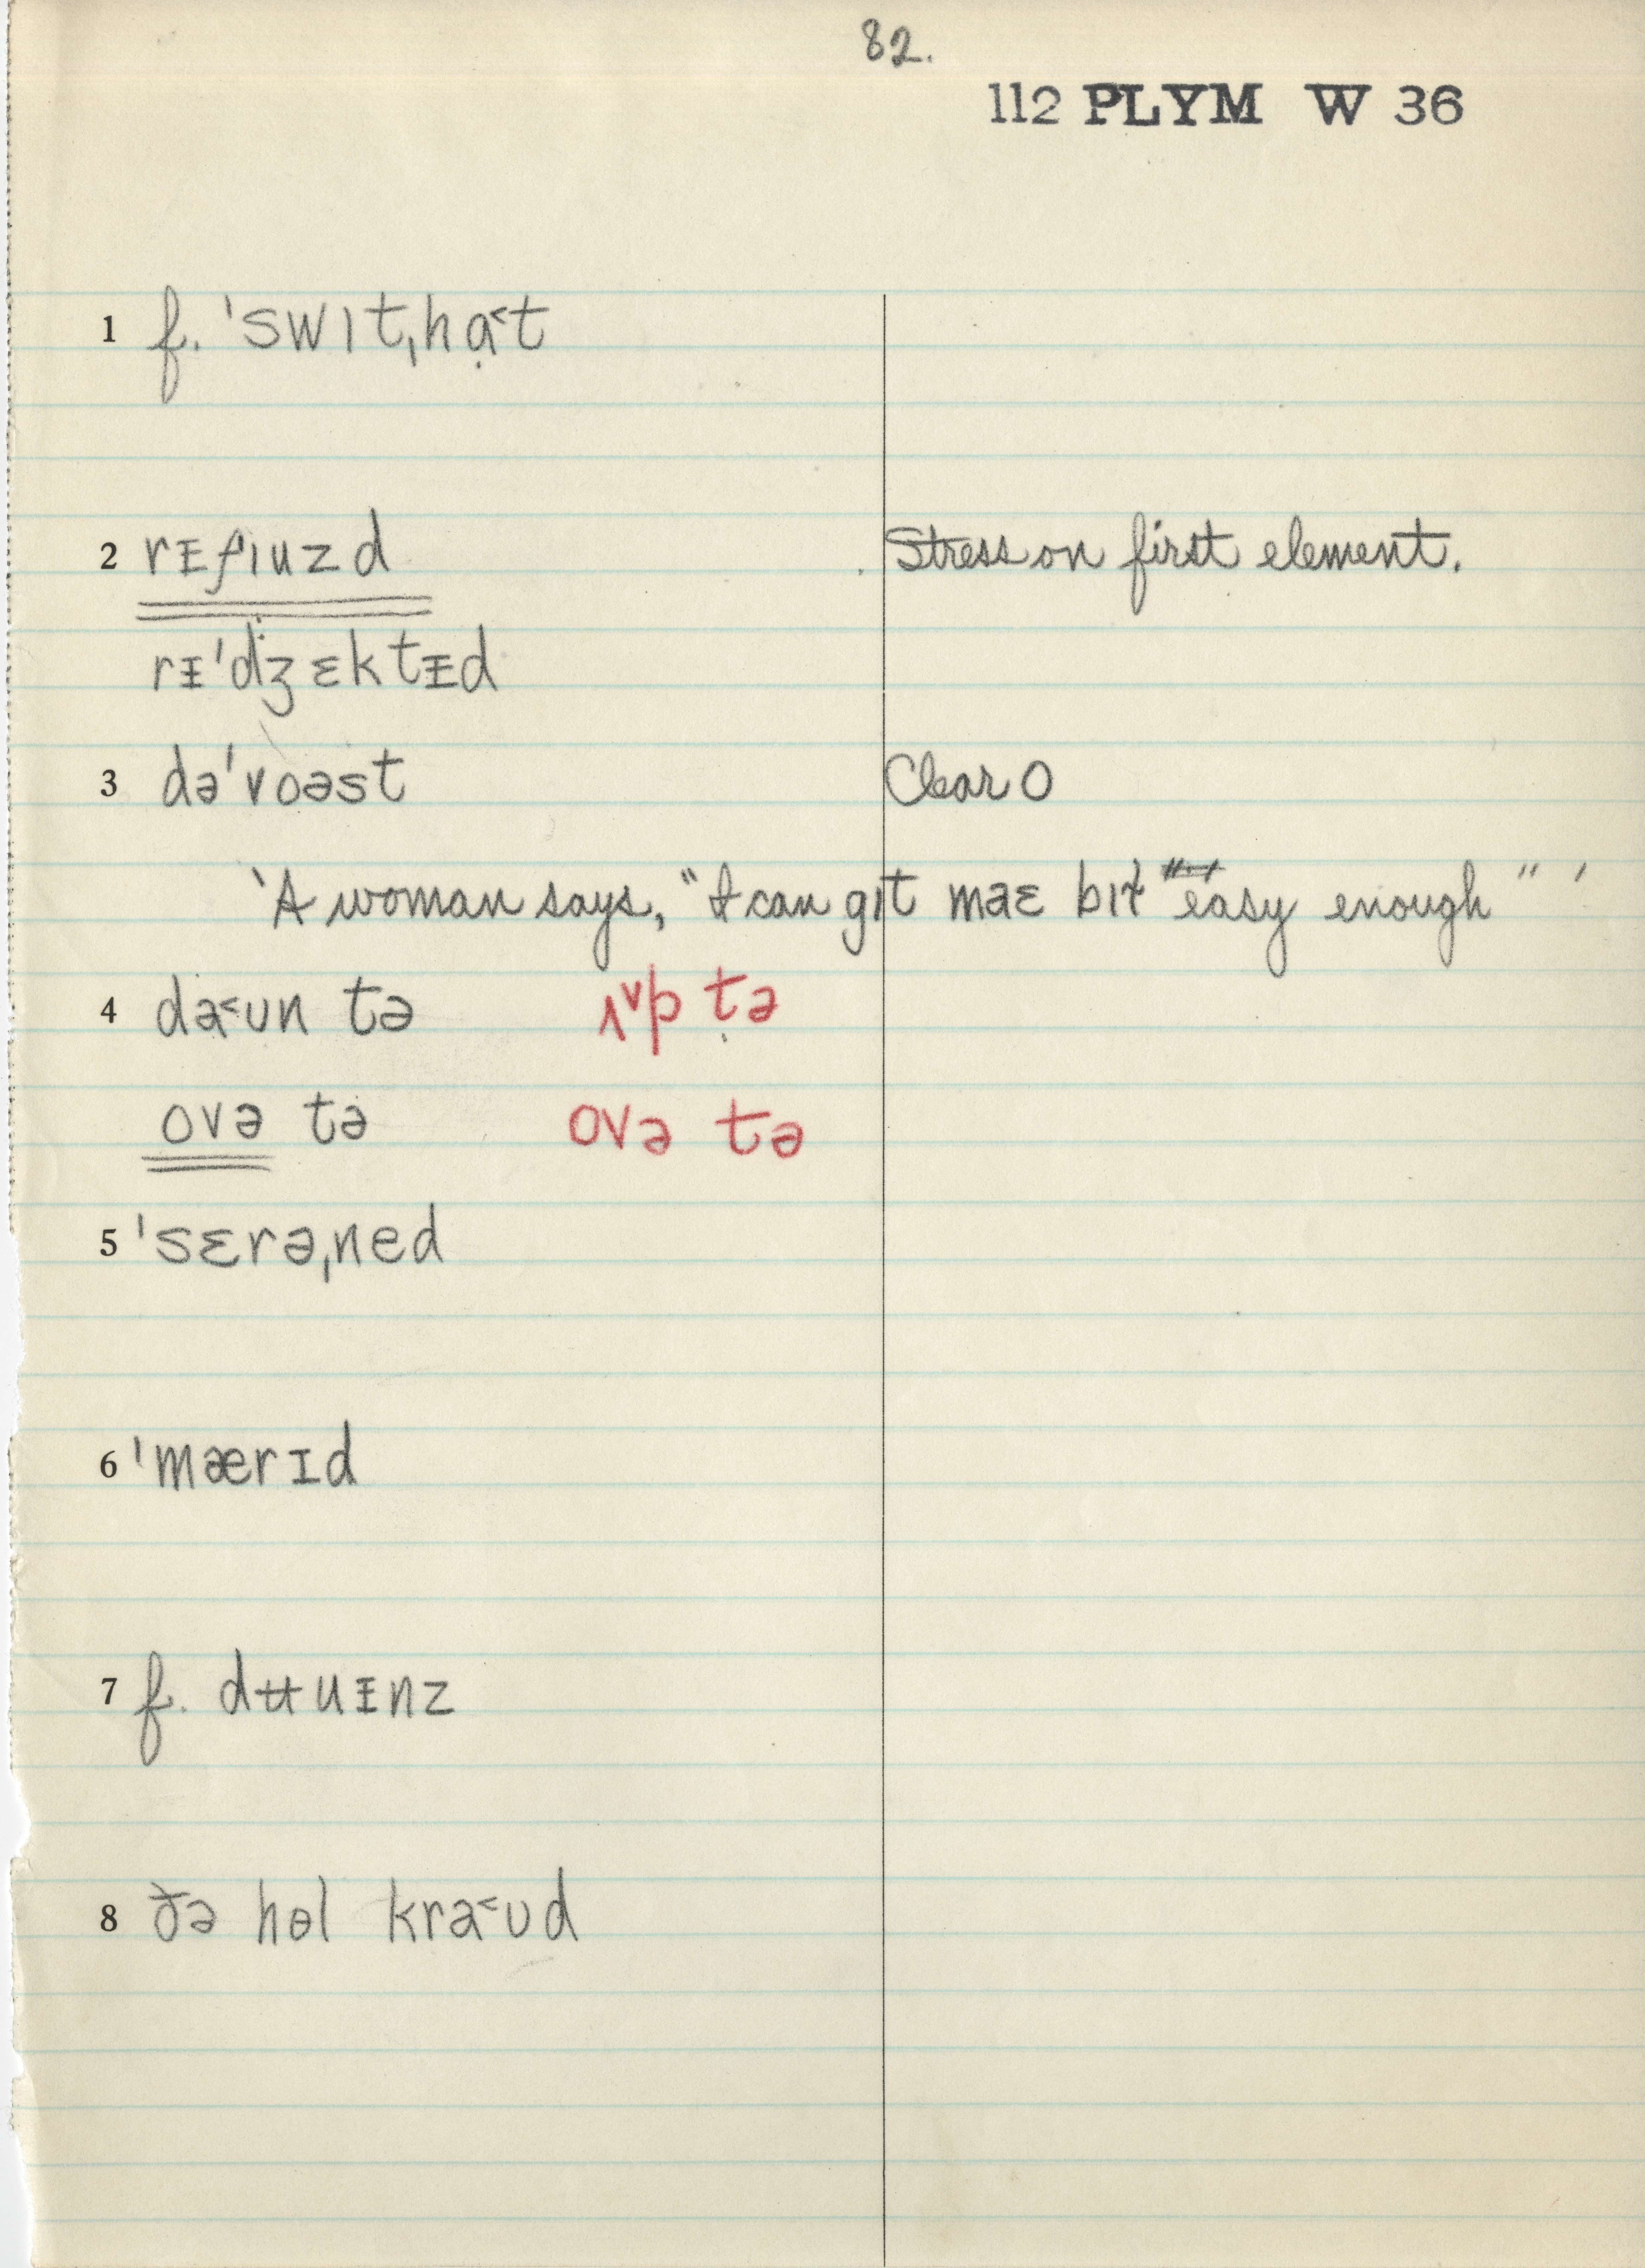 82.
112 PLYM W 36
1 f. ˈswɪtˌhɑ̣˂t
2 rᵻfɪuzd Stress on first element.
rᵻˈdʒɛktᵻd
3 dəˈvoəst Clear O
'A woman says, "I can gɪt maɛ bɪt easy enough" '
4 da˂ʊn tə ʌ˅p tə
ovə tə ovə tə
5 ˈsɛrəˌned
6 ˈmærɪd
7 f. dʉuᵻnz
8 ðə hɵl kra˂ʊd